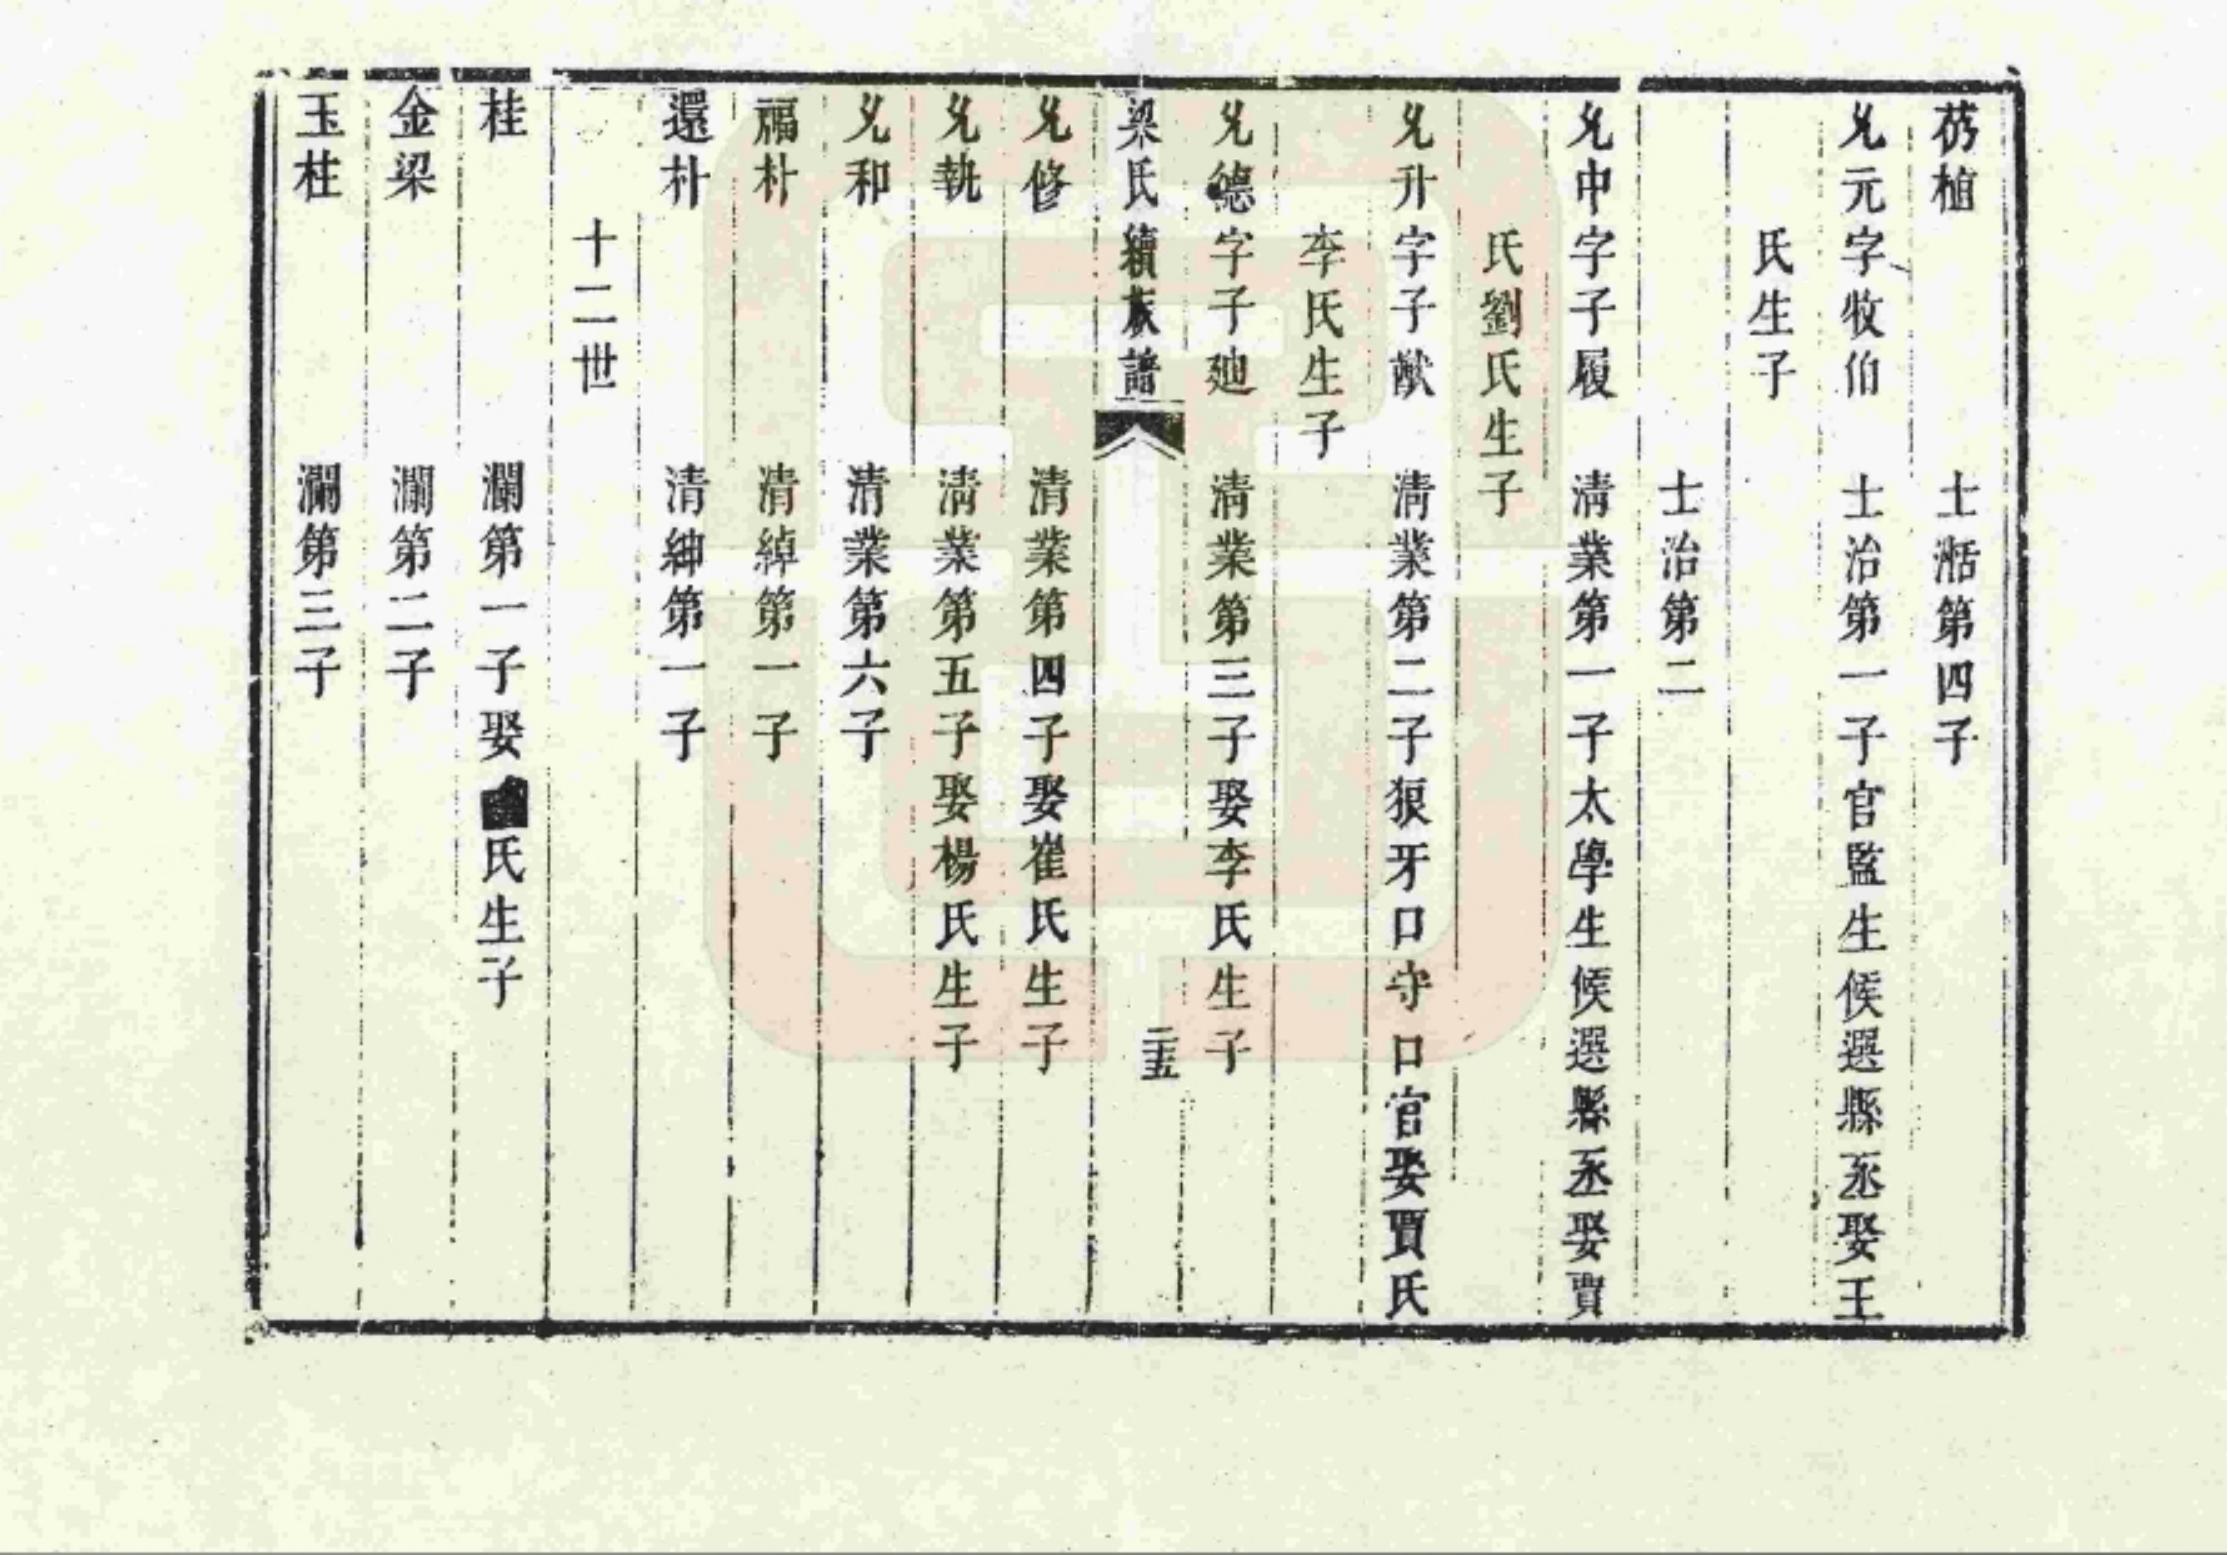 植 士湉第四子
允元字牧伯 士治第一子官監生候選縣丞娶王
氏生子
士治第二
允中字子履 清業第一子太學生候選縣丞娶賈
氏劉氏生子
允升字子猷 清業第二子狼牙口守口官娶賈氏
李氏生子
允德字子廸 清業第三子娶李氏生子
梁氏續族譜 二十五
允修 清業第四子娶崔氏生子
允執 清業第五子娶楊氏生子
允和 清業第六子
福朴 清綽第一子
還朴 清紳第一子
十二世
桂 瀾第一子娶氏生子
金梁 瀾第二子
玉桂 瀾第三子